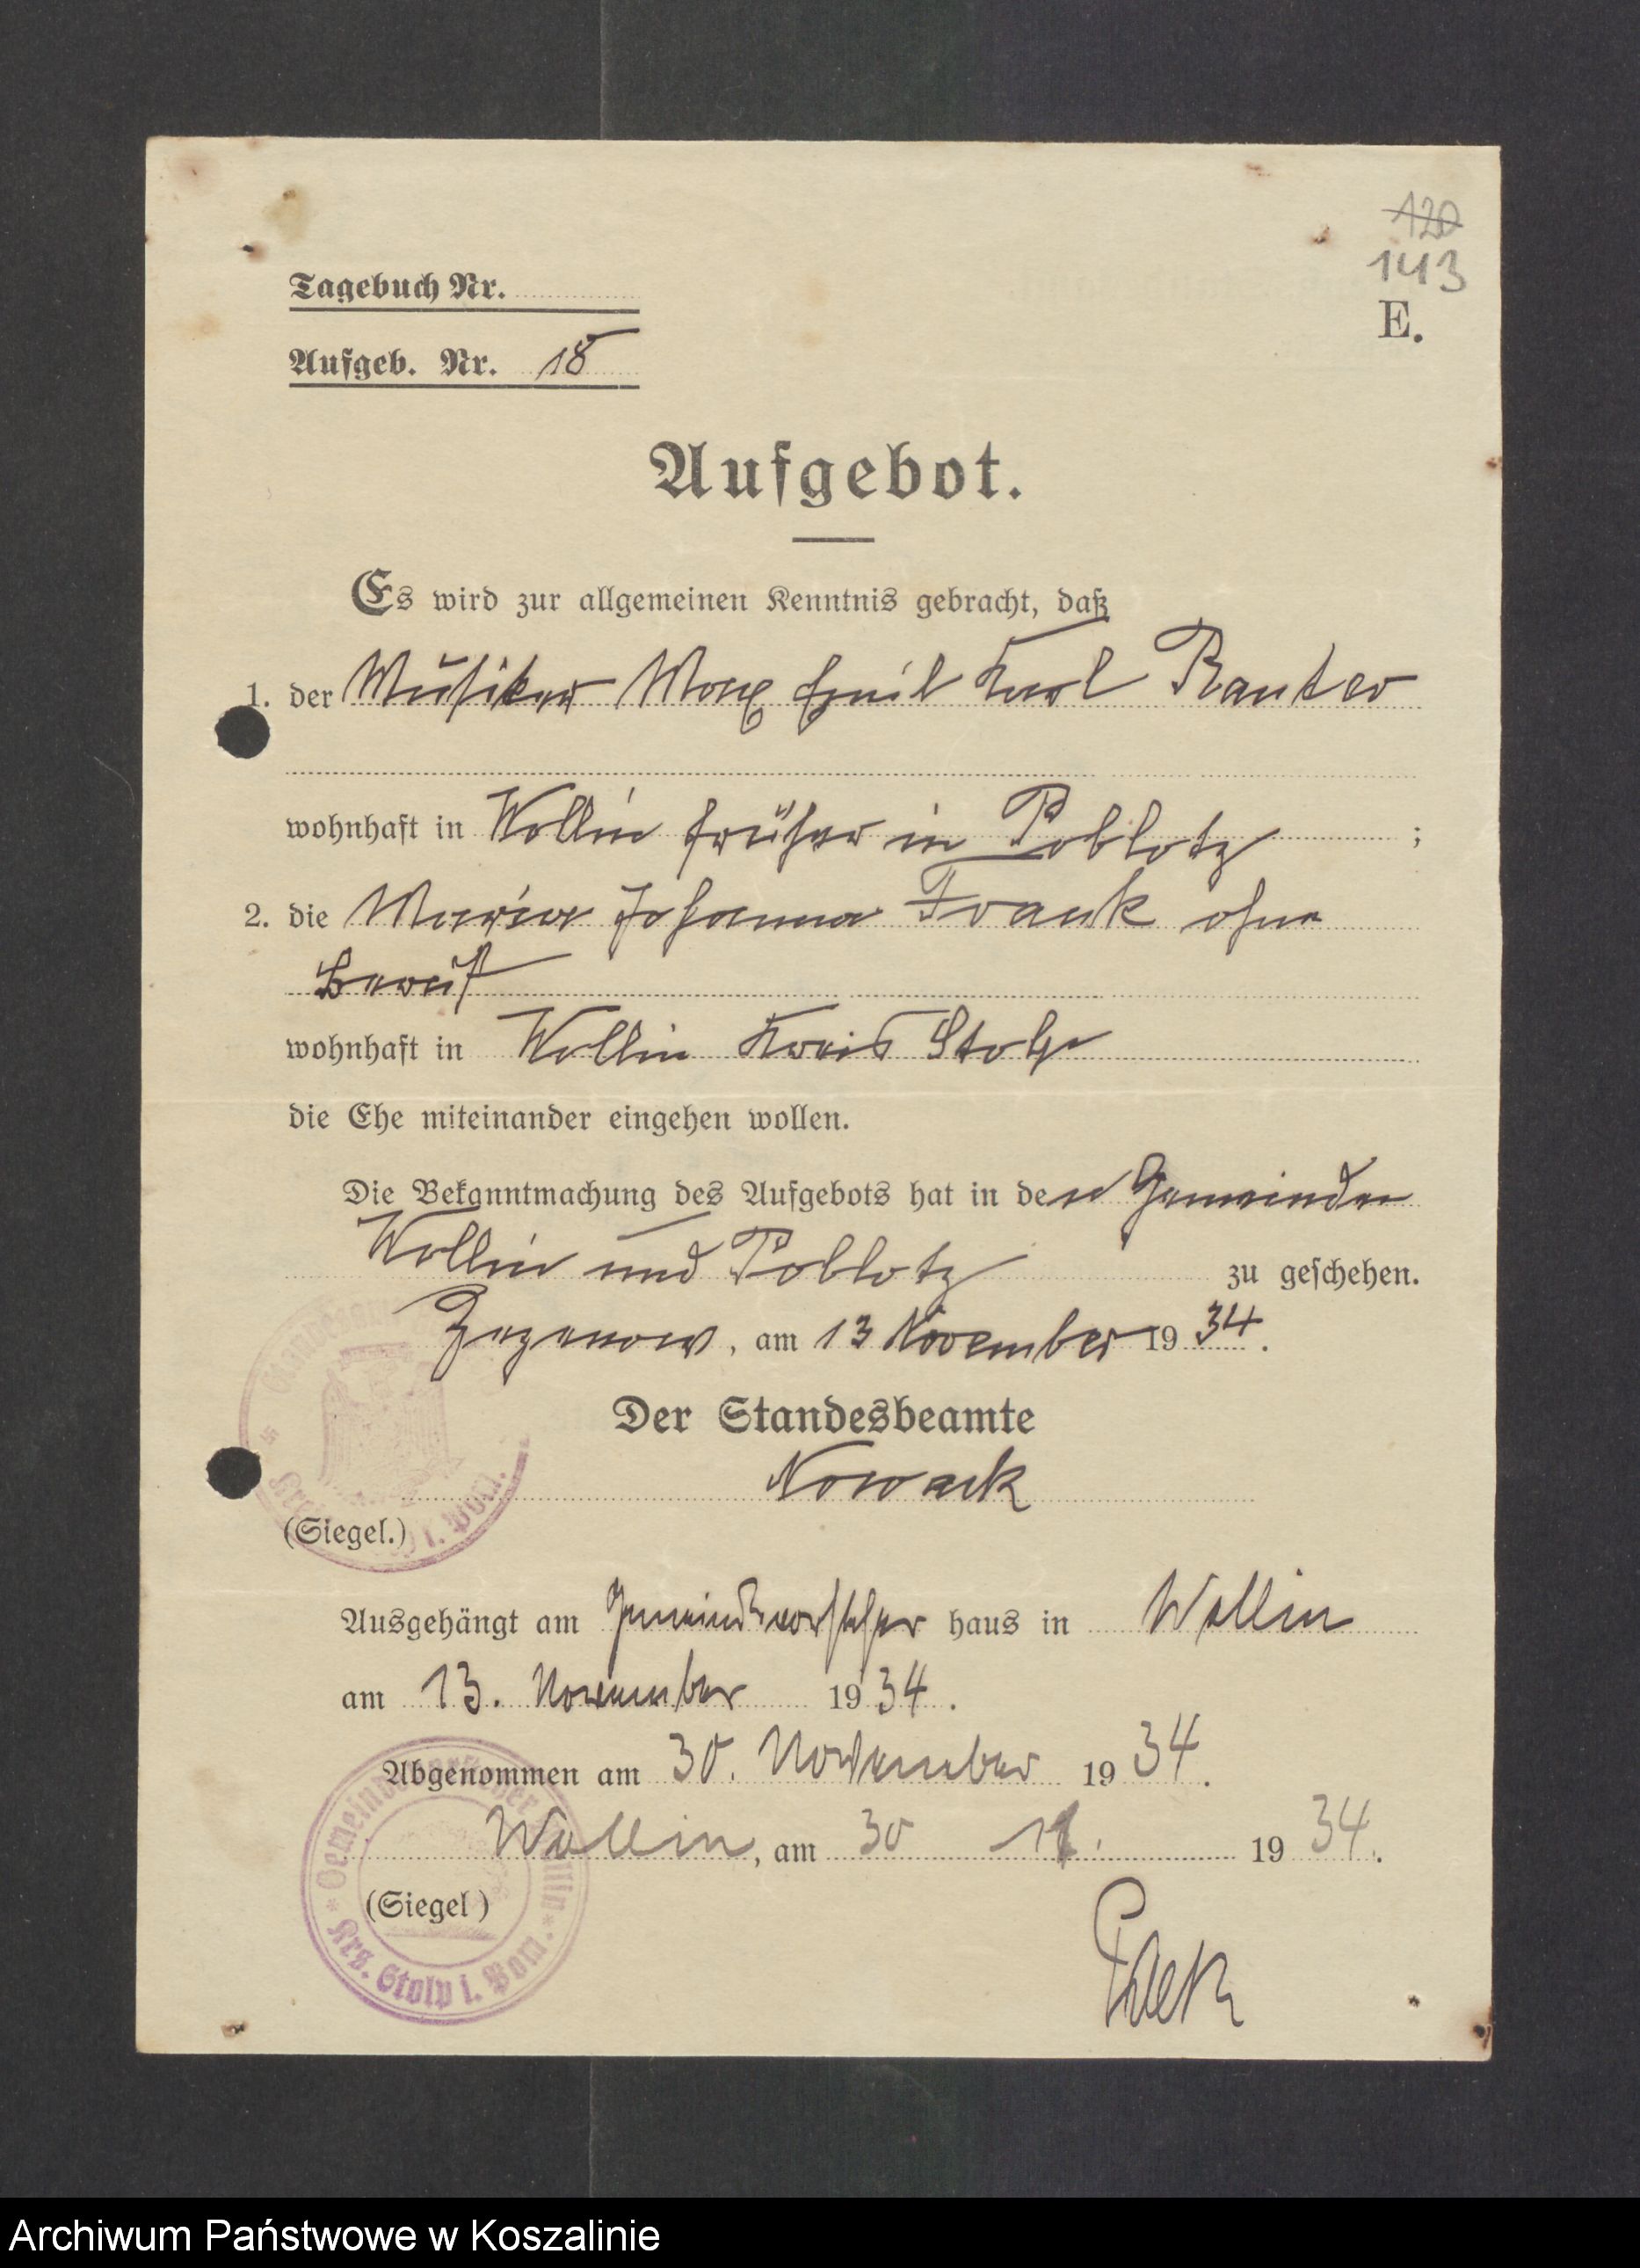 120
143
E.
Tagebuch Nr.
Aufgeb. Nr. 18
Aufgebot.
Es wird zur allgemeinen Kenntnis gebracht, daß
1. der Musiker Max Emil Karl Rauter
wohnhaft in Wollin früher in Poblotz ;
2. die Maria Johanna Frank ohne
Beruf
wohnhaft in Wollin Kreis Stolp
die Ehe miteinander eingehen wollen.
Die Bekanntmachung des Aufgebots hat in den Gemeinden
Wollin und Poblotz zu geschehen.
Zezenow, am 13 November 1934.
Der Standesbeamte
Nowack
(Siegel.)
i. Pom.
Ausgehängt am Gemeindevorsteher haus in Wollin
am 13. November 1934.
Abgenommen am 30. November 1934.
Wollin, am 30 11. 1934.
(Siegel)
Gemeindevorsteher Wollin * Krs. Stolp i. Pom. *
Archiwum Państwowe w Koszalinie